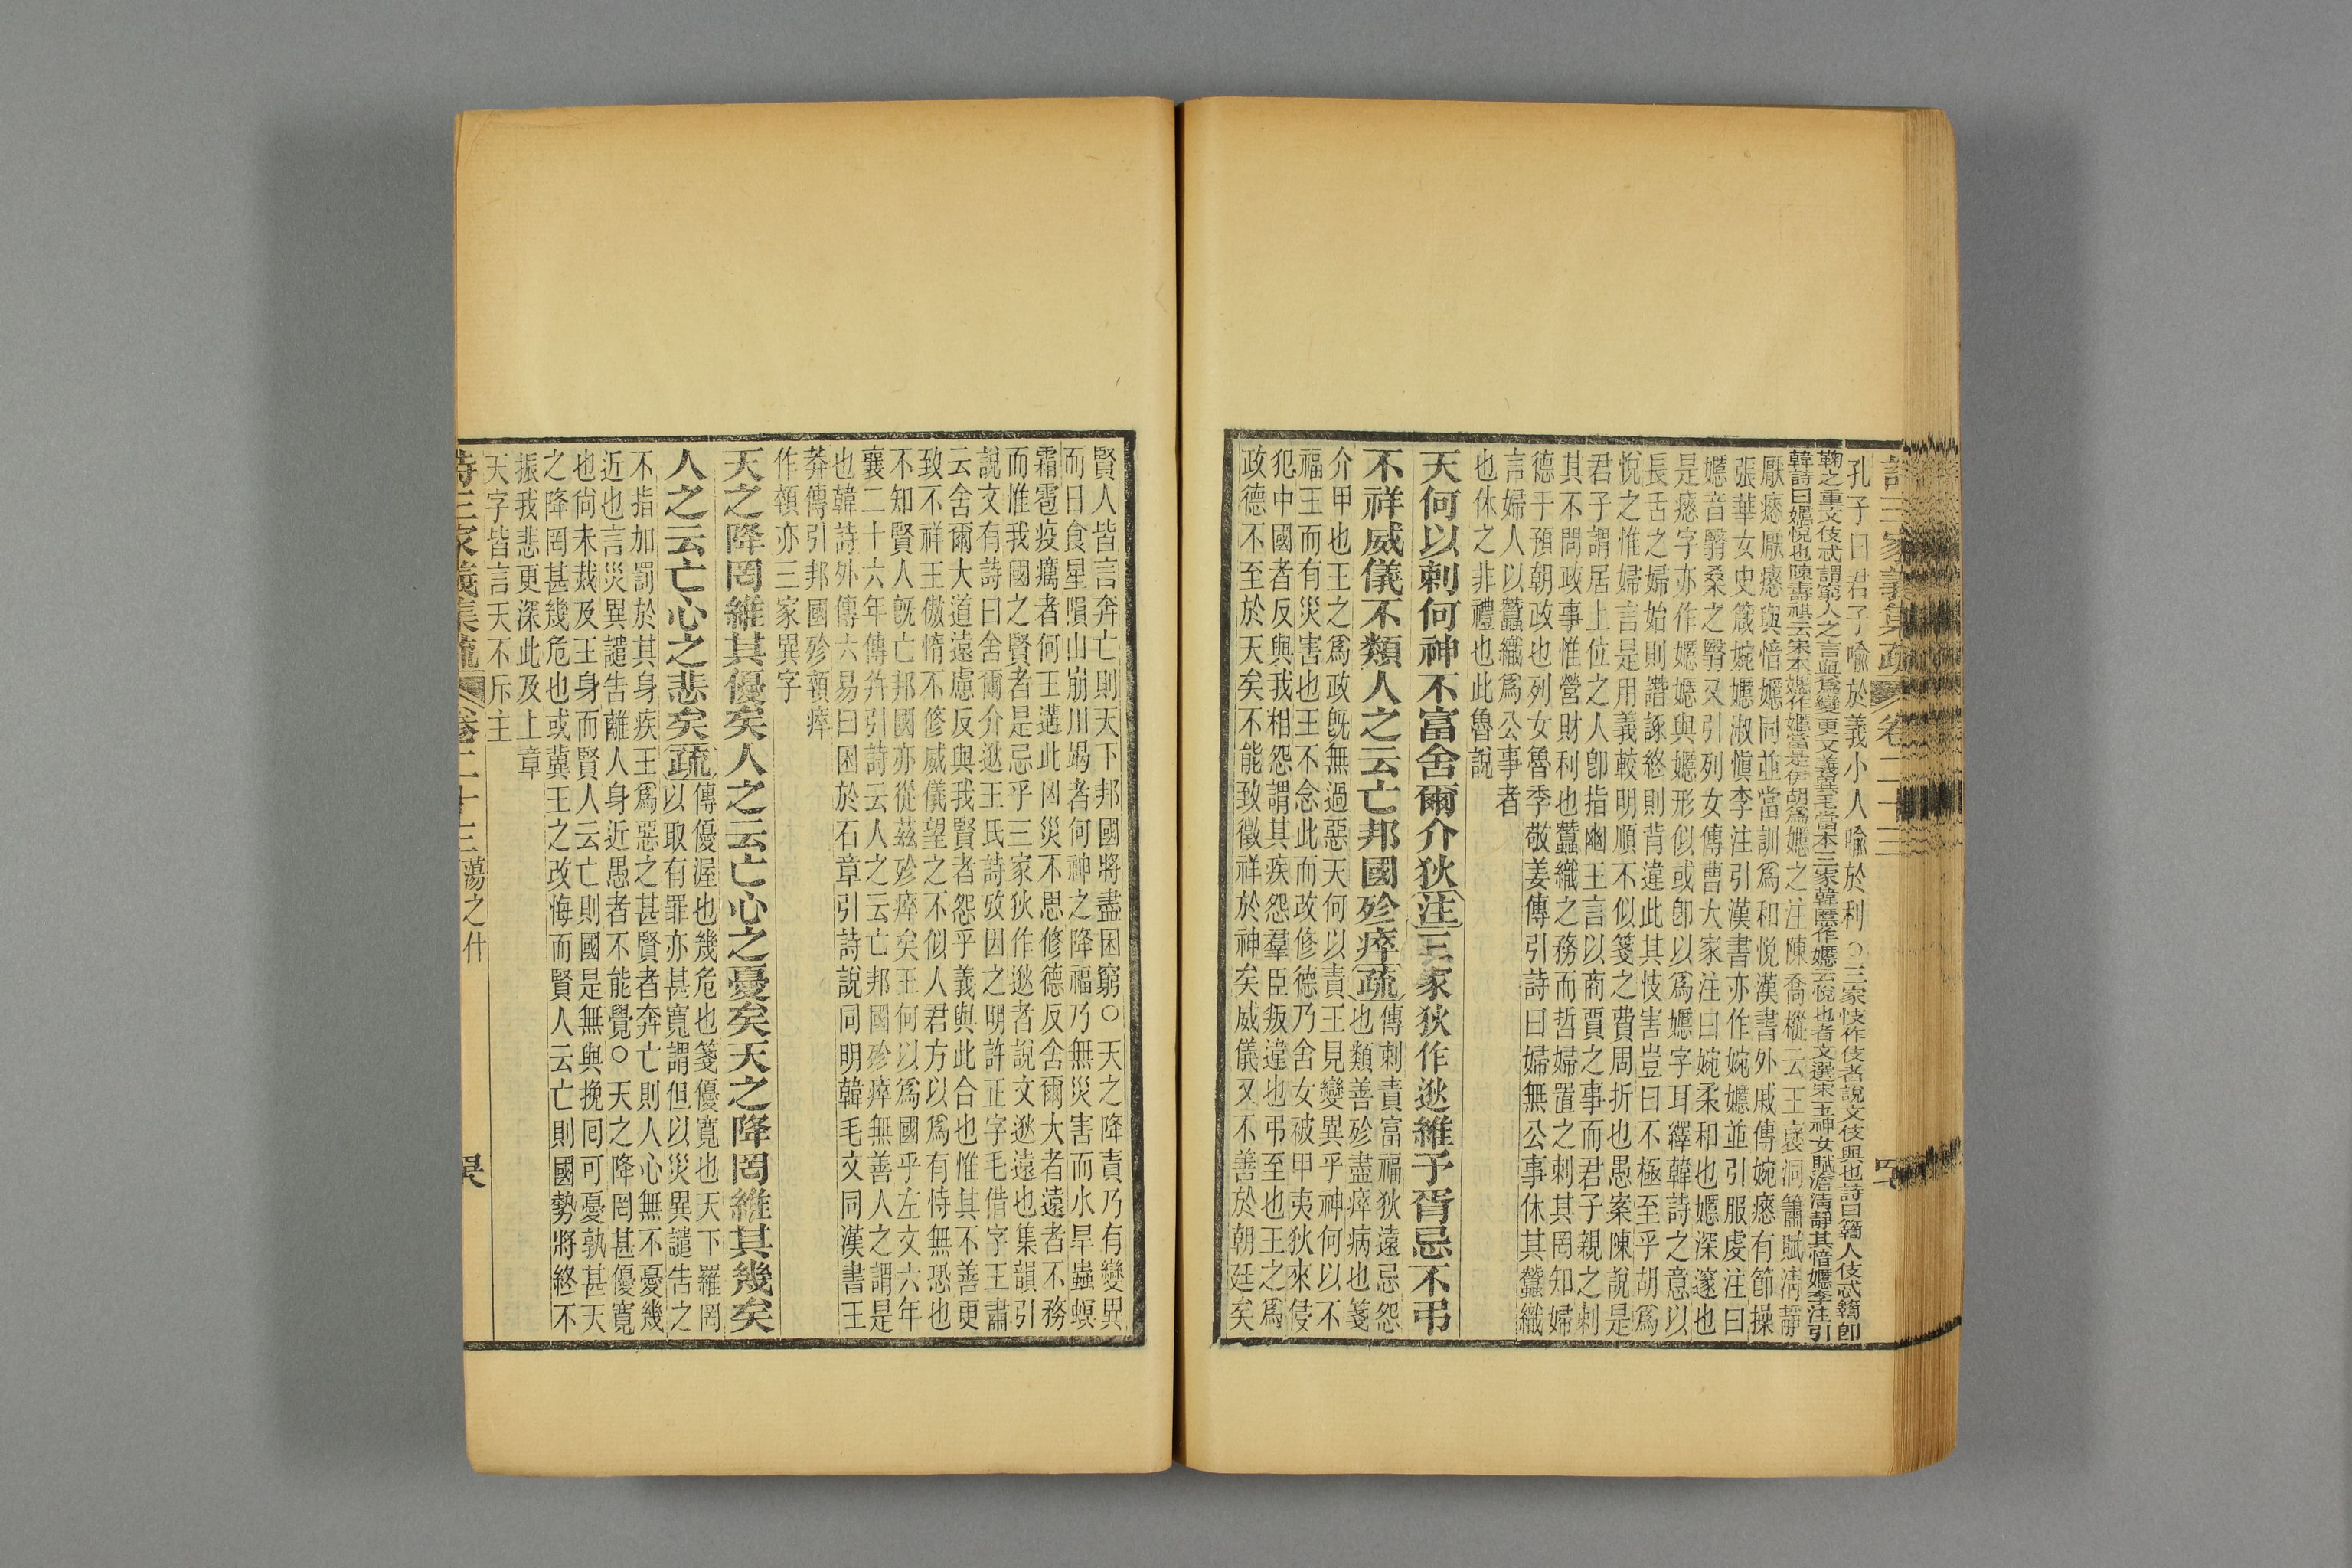 詩三家義集疏 卷二十三
孔子曰君子喻於義小人喻於利○三家忮作伎者說文伎與也詩曰籥人伎忒籥即
鞫之重文伎忒謂窮人之言與爲變更文義異毛當本三家韓懕作嬺云悅也者文選宋玉神女賦澹淸靜其愔嬺李注引
韓詩曰嬺悅也陳壽祺云宋本嬺作嫕當是伊胡爲嬺之注陳喬樅云王襃洞簫賦淸靜
厭瘱厭瘱與愔嬺同並當訓爲和悅漢書外戚傳婉瘱有節操
張華女史箴婉嬺淑愼李注引漢書亦作婉嬺並引服虔注曰
嬺音翳桑之翳又引列女傳曹大家注曰婉柔和也嬺深邃也
是瘱字亦作嬺嬺與嬺形似或卽以爲嬺字耳繹韓詩之意以
長舌之婦始則譖諑終則背違此其忮害豈曰不極至乎胡爲
悅之惟婦言是用義較明順不似箋之費周折也愚案陳說是
君子謂居上位之人卽指幽王言以商賈之事而君子親之刺
其不問政事惟營財利也蠶織之務而哲婦置之刺其罔知婦
德于預朝政也列女魯季敬姜傳引詩曰婦無公事休其蠶織
言婦人以蠶織爲公事者
也休之非禮也此魯說
天何以刺何神不富舍爾介狄注三家狄作逖維予胥忌不弔
不祥威儀不類人之云亡邦國殄瘁疏傳刺責富福狄遠忌怨
也類善殄盡瘁病也箋
介甲也王之爲政旣無過惡天何以責王見變異乎神何以不
福王而有災害也王不念此而改修德乃舍女被甲夷狄來侵
犯中國者反與我相怨謂其疾怨羣臣叛違也弔至也王之爲
政德不至於天矣不能致徵祥於神矣威儀又不善於朝廷矣
賢人皆言奔亡則天下邦國將盡困窮○天之降責乃有變異
而日食星隕山崩川竭者何神之降福乃無災害而水旱蟲螟
霜雹疫癘者何王遘此凶災不思修德反舍爾大者遠者不務
而惟我國之賢者是忌乎三家狄作逖者說文逖遠也集韻引
說文有詩曰舍爾介逖王氏詩攷因之明許正字毛借字王肅
云舍爾大道遠慮反與我賢者怨乎義與此合也惟其不善更
致不祥王傲惰不修威儀望之不似人君方以爲有恃無恐也
不知賢人旣亡邦國亦從茲殄瘁矣王何以爲國乎左文六年
襄二十六年傳幷引詩云人之云亡邦國殄瘁無善人之謂是
也韓詩外傳六易曰困於石章引詩說同明韓毛文同漢書王
莽傳引邦國殄顇瘁
作顇亦三家異字
天之降罔維其優矣人之云亡心之憂矣天之降罔維其幾矣
人之云亡心之悲矣疏傳優渥也幾危也箋優寬也天下羅罔
以取有罪亦甚寬謂但以災異譴告之
不指加罰於其身疾王爲惡之甚賢者奔亡則人心無不憂幾
近也言災異譴告離人身近愚者不能覺○天之降罔甚優寬
也尙未烖及王身而賢人云亡則國是無與挽囘可憂孰甚天
之降罔甚幾危也或冀王之改悔而賢人云亡則國勢將終不
振我悲更深此及上章
天字皆言天不斥主
詩三家義集疏 卷二十三 蕩之什